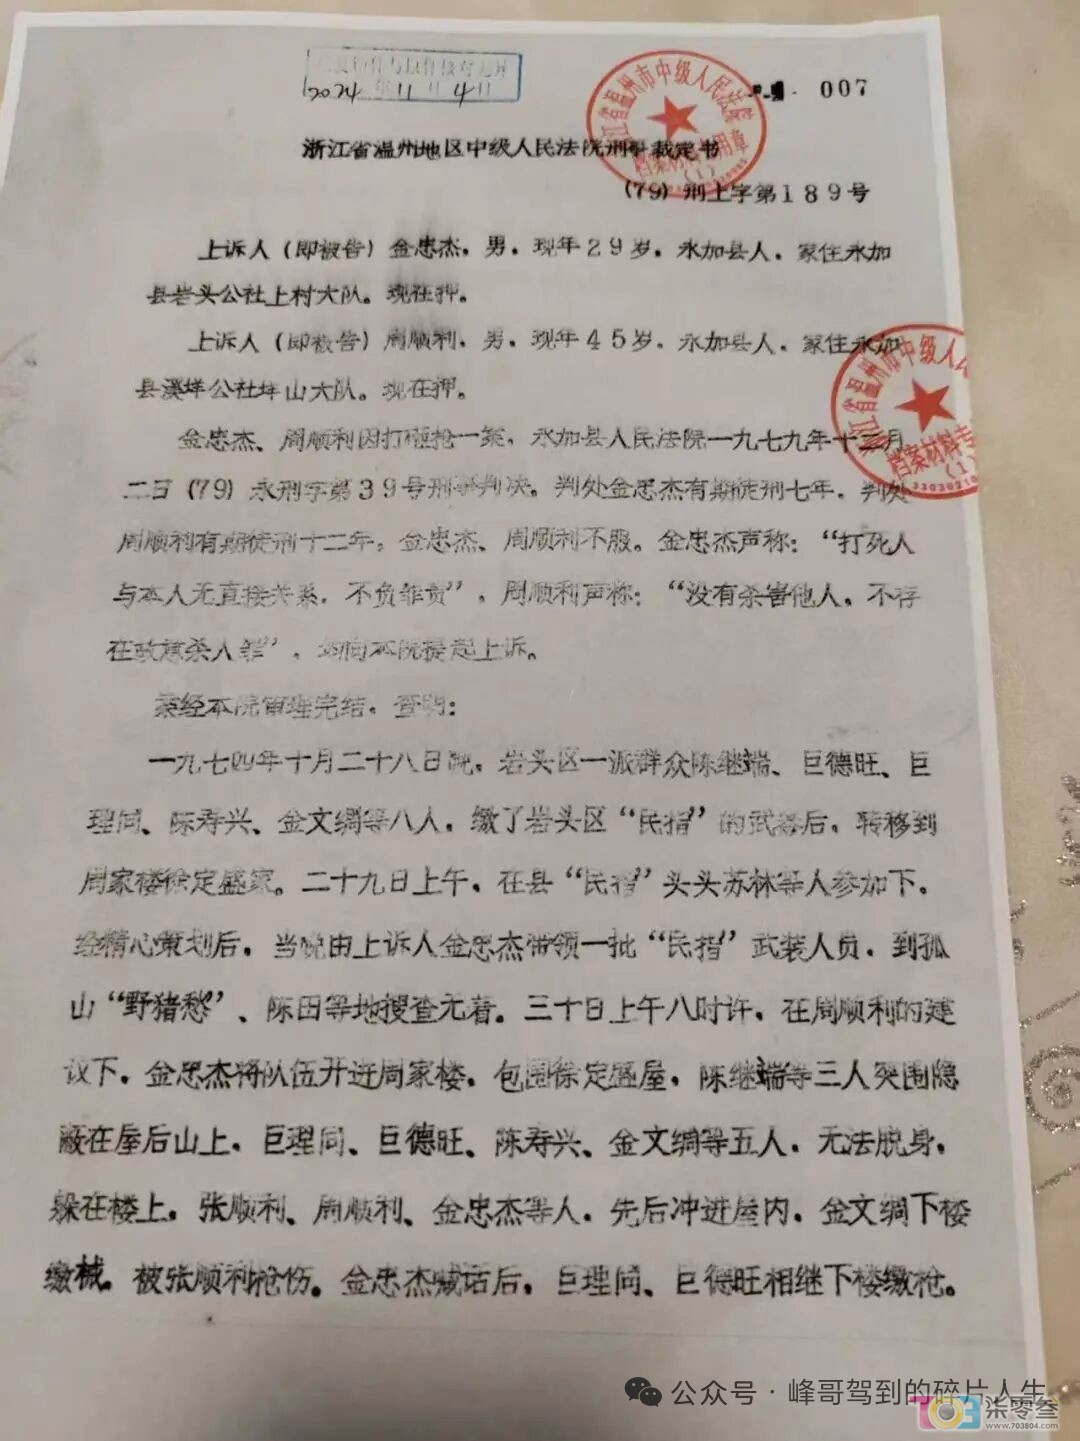 复制件与原件核对无异
2024年11月4日
007
浙江省温州市中级人民法院
档案材料专用章
(1)
浙江省温州地区中级人民法院刑事裁定书
(79)刑上字第189号
上诉人(即被告)金忠杰，男，现年29岁，永加县人，家住永加
县岩头公社上村大队。现在押。
上诉人(即被告)周顺利，男，现年45岁，永加县人，家住永加
县溪垟公社垟山大队。现在押。
浙江省温州市中级人民
档案材料专
(1)
金忠杰、周顺利因打砸抢一案，永加县人民法院一九七九年十二月
二日(79)永刑字第39号刑事判决。判处金忠杰有期徒刑七年，判处
周顺利有期徒刑十二年，金忠杰、周顺利不服。金忠杰声称：“打死人
与本人无直接关系，不负罪责”，周顺利声称：“没有杀害他人，不存
在故意杀人罪”，均向本院提起上诉。
案经本院审理完结，查明：
一九七四年十月二十八日晚，岩头区一派群众陈继端、巨德旺、巨
理同、陈寿兴、金文绸等八人，缴了岩头区“民指”的武器后，转移到
周家楼徐定盛家。二十九日上午，在县“民指”头头苏林等人参加下，
经精心策划后，当晚由上诉人金忠杰带领一批“民指”武装人员，到孤
山“野猪愁”、陈田等地搜查无着。三十日上午八时许，在周顺利的建
议下，金忠杰将队伍开进周家楼，包围徐定盛屋，陈继端等三人突围隐
蔽在屋后山上，巨理同、巨德旺、陈寿兴、金文绸等五人，无法脱身，
躲在楼上，张顺利、周顺利、金忠杰等人，先后冲进屋内，金文绸下楼
缴械。被张顺利枪伤。金忠杰喊话后，巨理同、巨德旺相继下楼缴枪。
公众号·峰哥驾到的碎片人生
703
柒零叁
www.703804.com